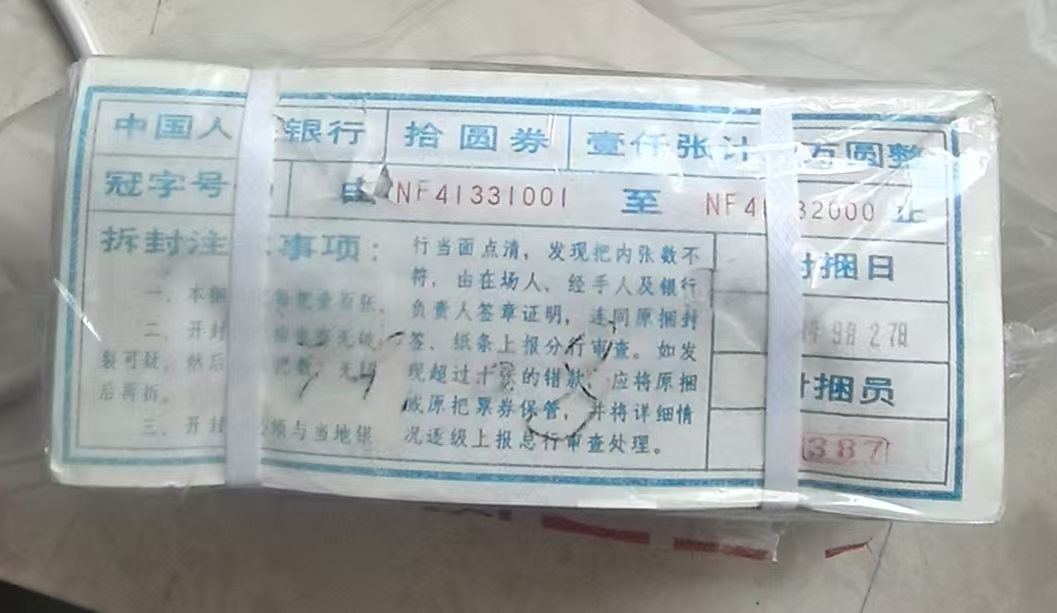 中国人 银行 拾圆券 壹仟张计 万圆整
冠字号 由 NF41331001 至 NF41 32000 止
拆封注 事项：
一、本捆 每把壹百张，
二、开封 无破
裂可疑，然后 把数，无
后再拆。
三、开封 须与当地银
行当面点清，发现把内张数不
符，由在场人、经手人及银行
负责人签章证明，连同原捆封
签、纸条上报分行审查。如发
现超过十张的错款，应将原捆
或原把票券保管，并将详细情
况逐级上报总行审查处理。
封捆日
年9月27日
封捆员
387